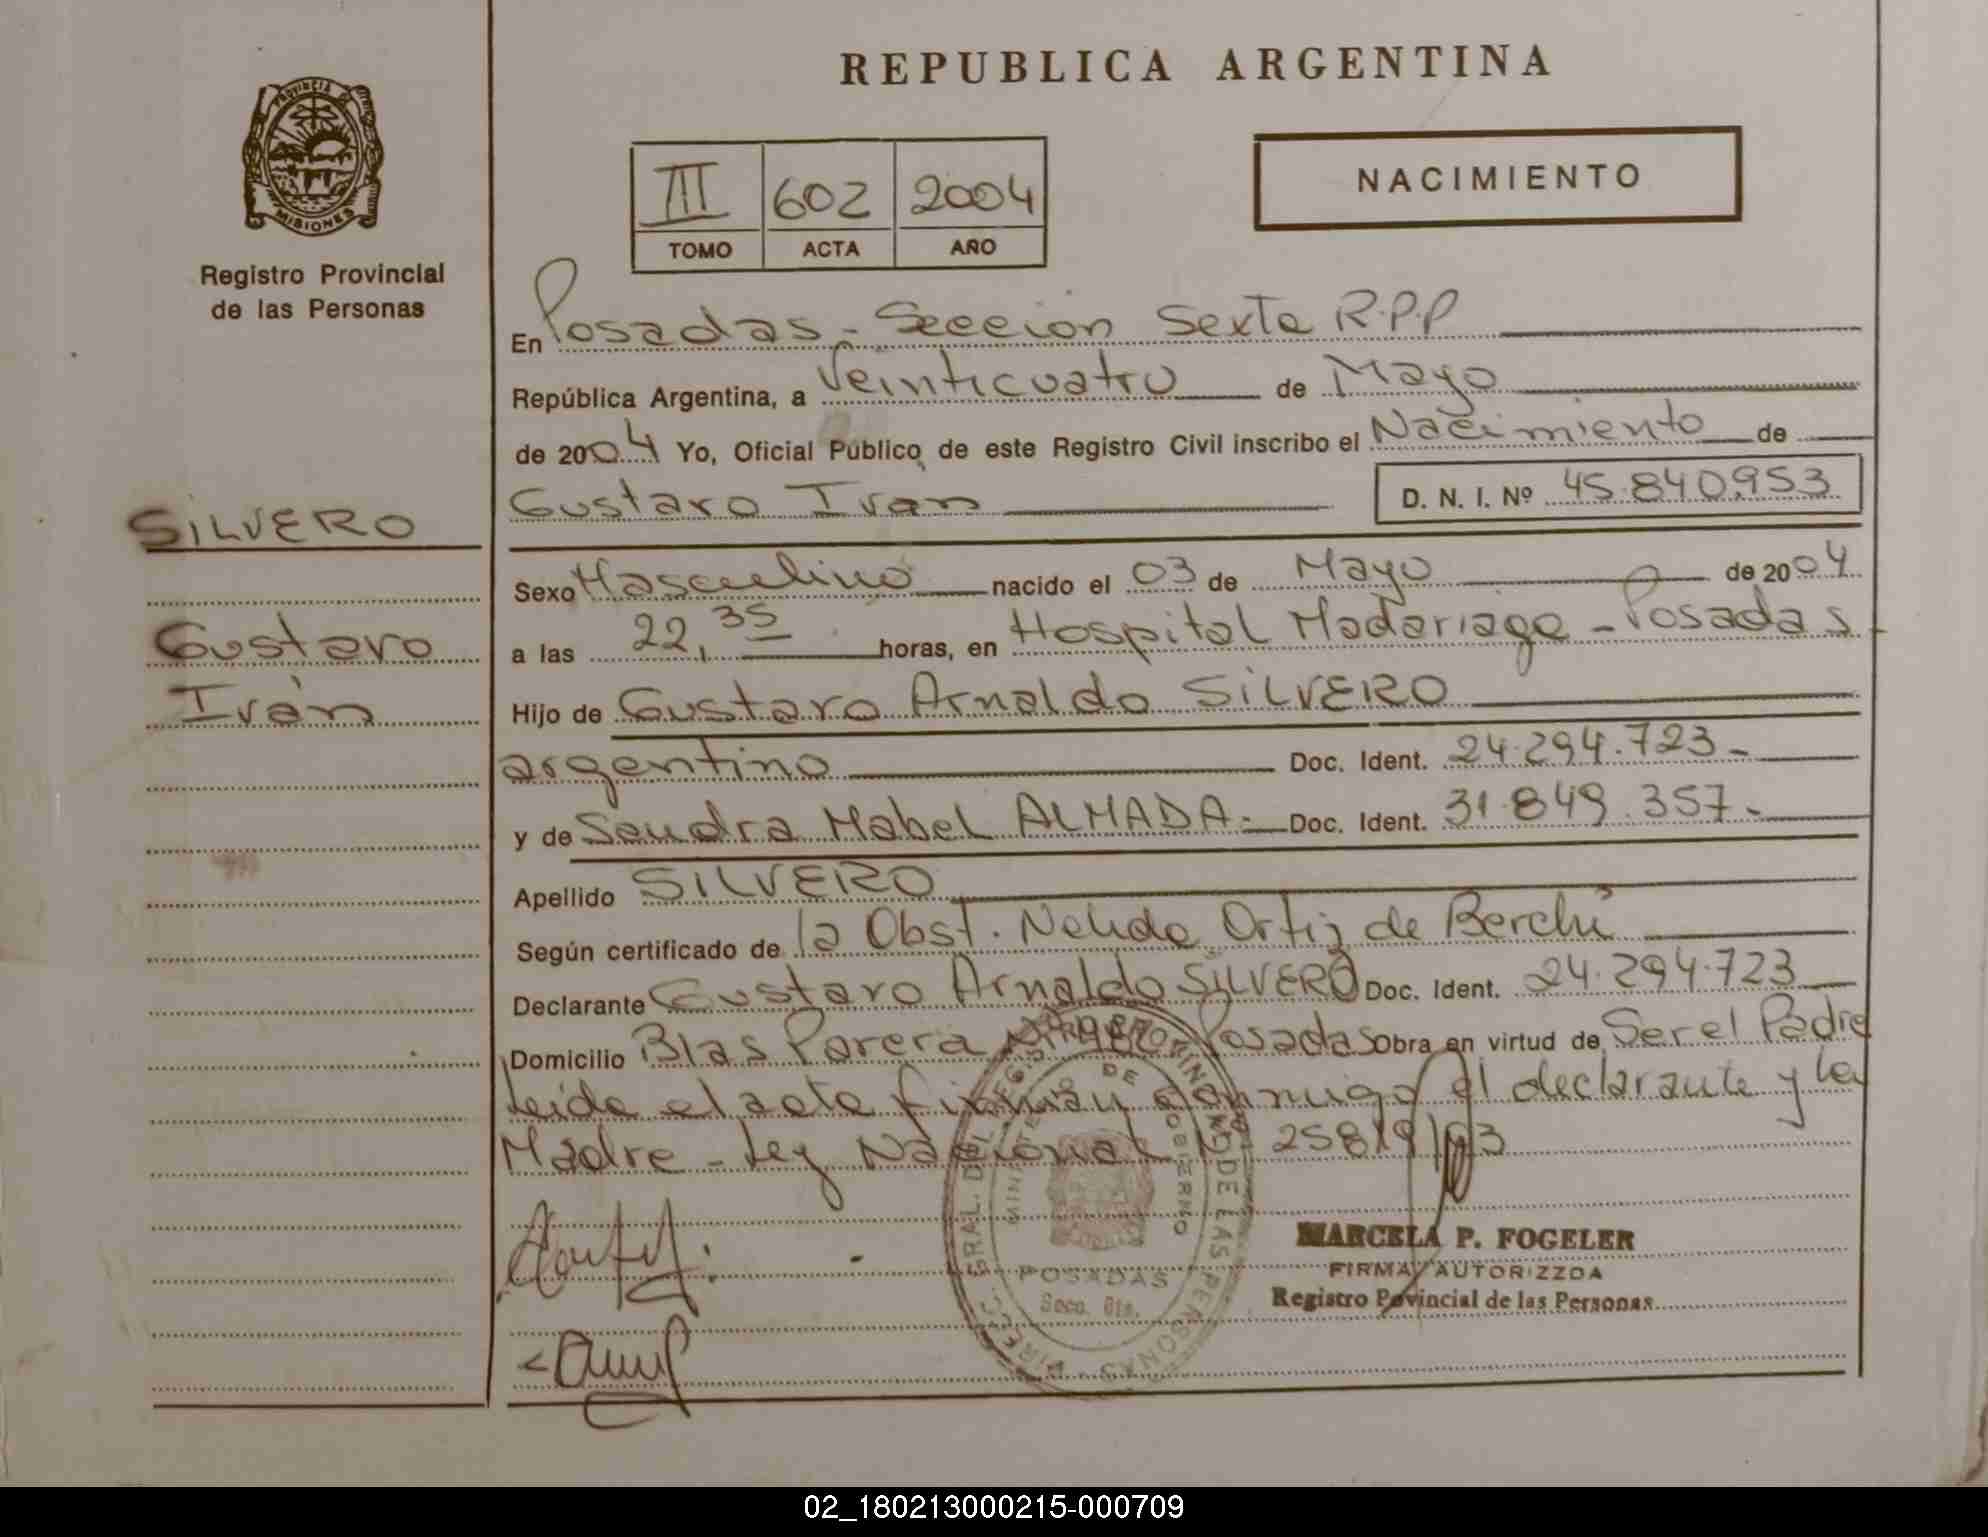 REPUBLICA ARGENTINA
PROVINCIA DE
MISIONES
Registro Provincial
de las Personas
III 602 2004
TOMO ACTA AÑO
NACIMIENTO
En Posadas - Seccion Sexta R.P.P
República Argentina, a Veinticuatro de Mayo
de 2004 Yo, Oficial Público de este Registro Civil inscribo el Nacimiento de
Gustavo Ivan D. N. I. Nº 45.840.953
SILVERO
Gustavo
Iván
Sexo Masculino nacido el 03 de Mayo de 2004
a las 22,35 horas, en Hospital Madariaga - Posadas
Hijo de Gustavo Arnaldo SILVERO
argentino Doc. Ident. 24.294.723-
y de Sandra Mabel ALMADA- Doc. Ident. 31.849.357-
Apellido SILVERO
Según certificado de la Obst. Nelida Ortiz de Berchi
Declarante Gustavo Arnaldo SILVERO Doc. Ident. 24.294.723
Domicilio Blas Parera Posadas Obra en virtud de Ser el Padre
Leida el acta firman conmigo el declarante y la
Madre - Ley Nacional Nº 25819/03
MINISTERIO DE GOBIERNO
POSADAS
Secc. 6ta.
MARCELA P. FOGELER
FIRMA AUTORIZZDA
Registro Povincial de las Personas
02_180213000215-000709